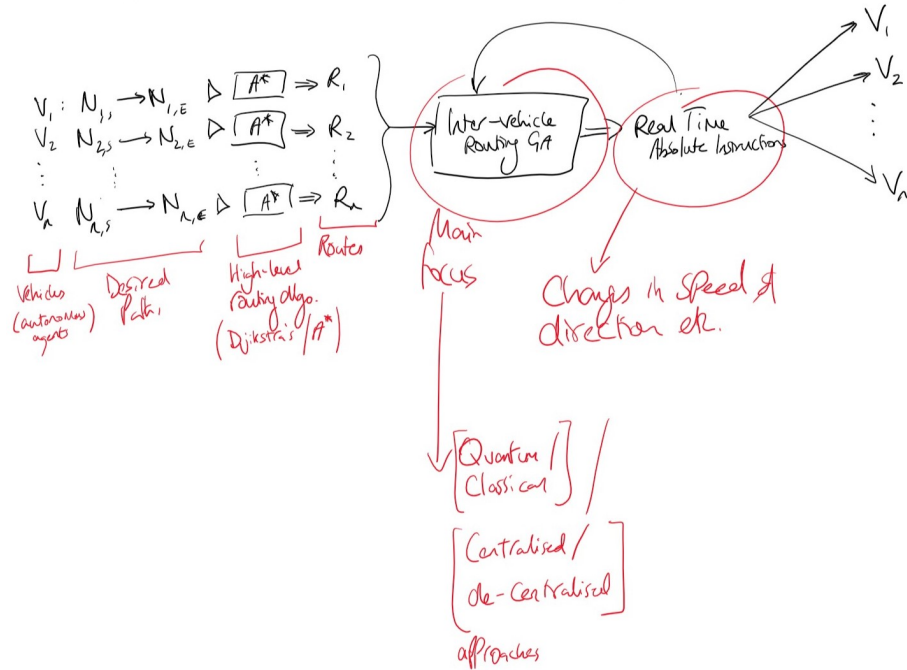 V₁ : N₁,ₛ → N₁,E ▷ A* ⇒ R₁
V₂ N₂,ₛ → N₂,E ▷ A* ⇒ R₂
⋮ ⋮ ⋮ ⋮
Vₙ Nₙ,ₛ → Nₙ,E ▷ A* ⇒ Rₙ
Vehicles
(autonomous
agents)
Desired
Path,
High-level
routing algo.
(Dijikstra's/A*)
Routes
Inter-vehicle
Routing GA
Real Time
Absolute Instructions
V₁
V₂
⋮
Vₙ
Main
focus
Changes in speed &
direction etc.
[Quantum/
Classical] /
[Centralised/
de-centralised]
approaches